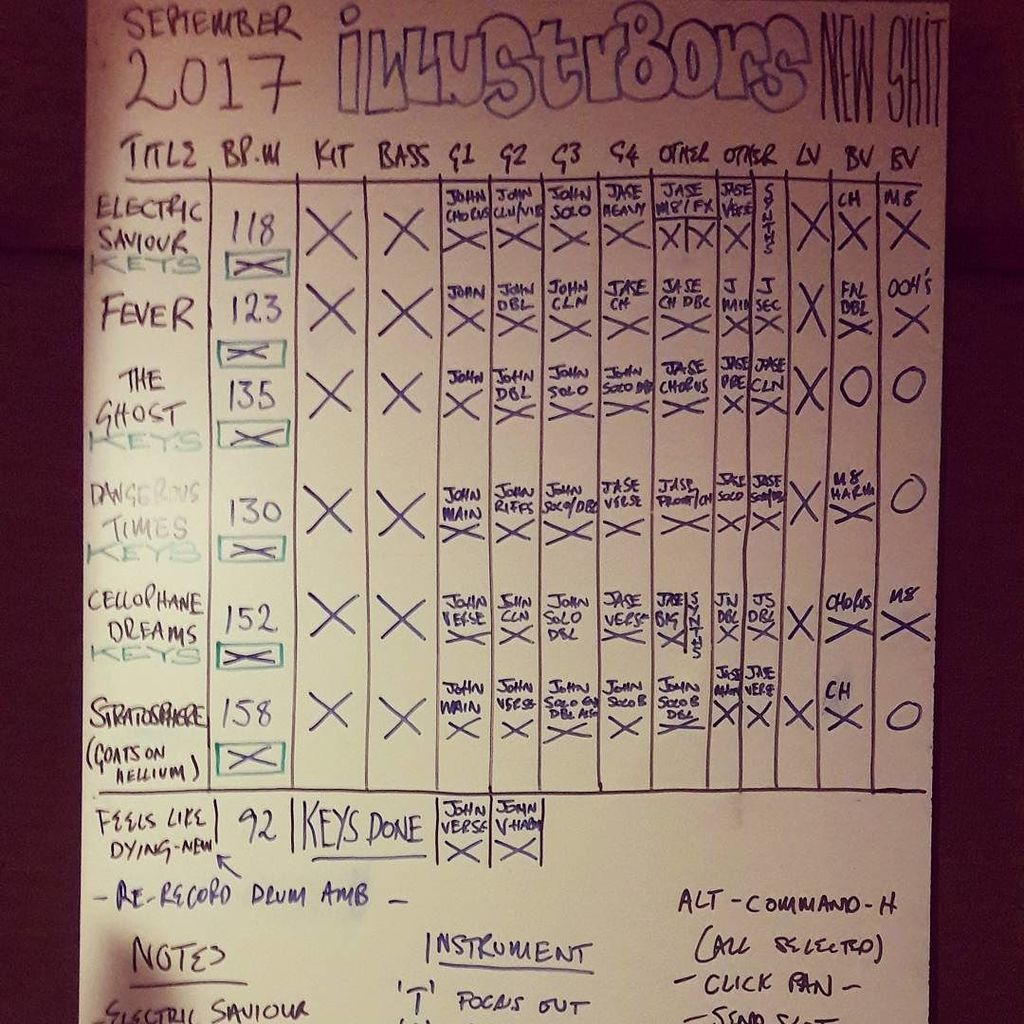 SEPTEMBER
2017 iLLUStr8ors NEW SHIT
TITLE BP.M KIT BASS G1 G2 G3 G4 OTHER OTHER LV BV BV
ELECTRIC SAVIOUR KEYS 118 X X X
JOHN CHORUS X
JOHN CLN/VIB X
JOHN SOLO X
JASE HEAVY X
JASE M8/FX X X
JASE VERSE X
SYNTHS
X
CH X
M8 X
FEVER 123 X X X
JOHN X
JOHN DBL X
JOHN CLN X
JASE CH X
JASE CH DBL X
J MAIN X
J SEC X
X
FAL DBL X
OOH'S X
THE GHOST KEYS 135 X X X
JOHN X
JOHN DBL X
JOHN SOLO X
JOHN SOLO X
JASE CHORUS X
JASE PRE X
JASE CLN X
X O O
DANGEROUS TIMES KEYS 130 X X X
JOHN MAIN X
JOHN RIFFS X
JOHN SOLO/DBL X
JASE VERSE X
JASE X
JASE SOLO X
JASE X
X
M8 HARM X
O
CELLOPHANE DREAMS KEYS 152 X X X
JOHN VERSE X
JOHN CLN X
JOHN SOLO DBL
JASE VERSE X
JASE BIG X
SYNTHS
JN DBL X
JS DBL X
X
CHORUS X
M8 X
STRATOSPHERE (GOATS ON HELLIUM) 158 X X X
JOHN MAIN X
JOHN VERSE X
JOHN SOLO DBL X
JOHN SOLO B X
JOHN SOLO B DBL X
JASE X
JASE VERSE X
X
CH X
O
FEELS LIKE DYING-NEW 92 KEYS DONE
JOHN VERSE X
JOHN V-HARM X
- RE-RECORD DRUM AMB -
NOTES
ELECTRIC SAVIOUR
INSTRUMENT
'T' FOCUS OUT
ALT-COMMAND-H
(ALL SELECTED)
- CLICK PAN -